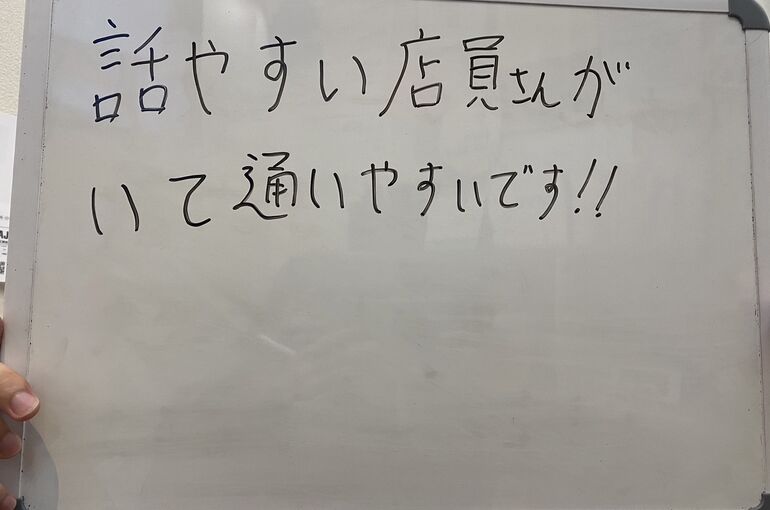 話やすい店員さんが
いて通いやすいです!!